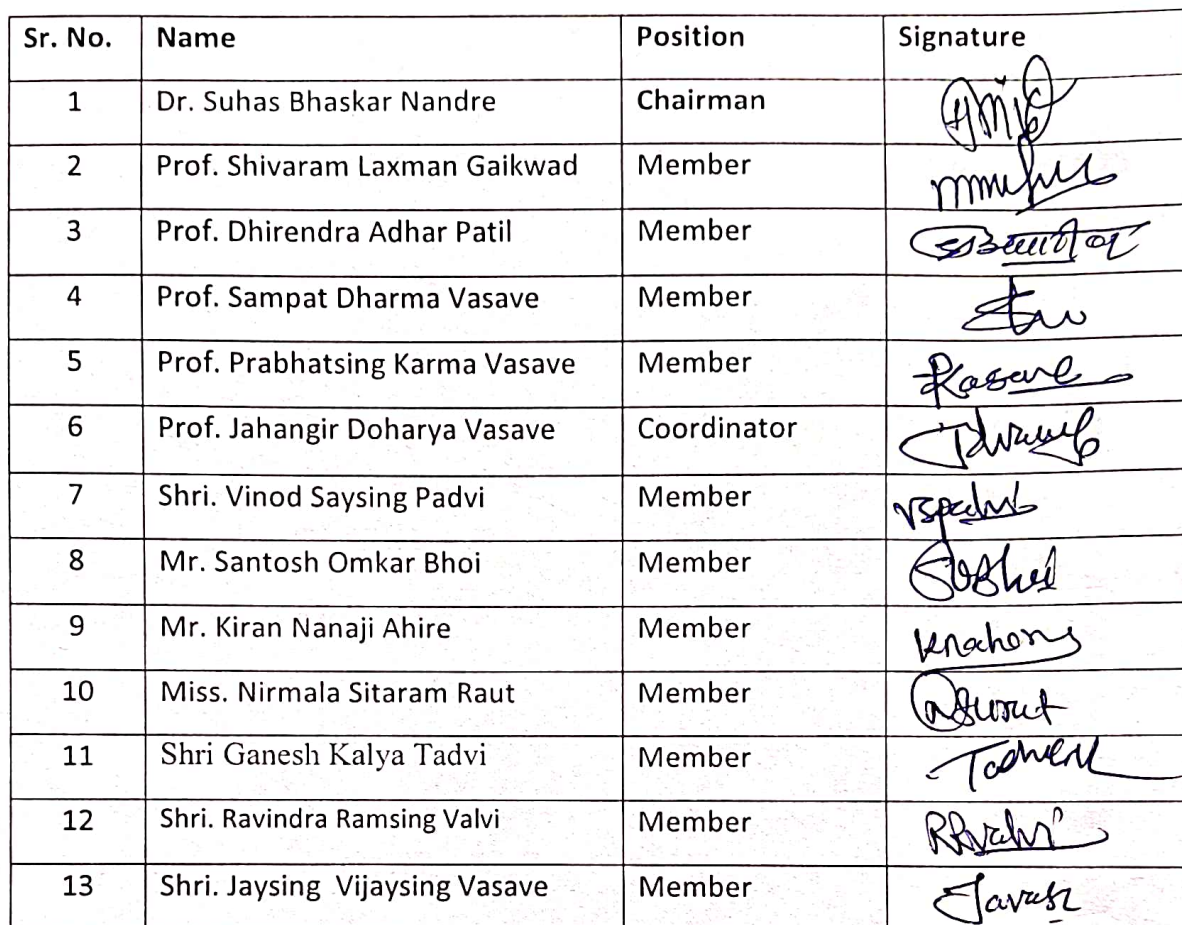 Sr. No. Name Position Signature
1 Dr. Suhas Bhaskar Nandre Chairman
2 Prof. Shivaram Laxman Gaikwad Member
3 Prof. Dhirendra Adhar Patil Member
4 Prof. Sampat Dharma Vasave Member
5 Prof. Prabhatsing Karma Vasave Member
6 Prof. Jahangir Doharya Vasave Coordinator
7 Shri. Vinod Saysing Padvi Member vspadvi
8 Mr. Santosh Omkar Bhoi Member
9 Mr. Kiran Nanaji Ahire Member
10 Miss. Nirmala Sitaram Raut Member
11 Shri Ganesh Kalya Tadvi Member
12 Shri. Ravindra Ramsing Valvi Member RRvalvi
13 Shri. Jaysing Vijaysing Vasave Member